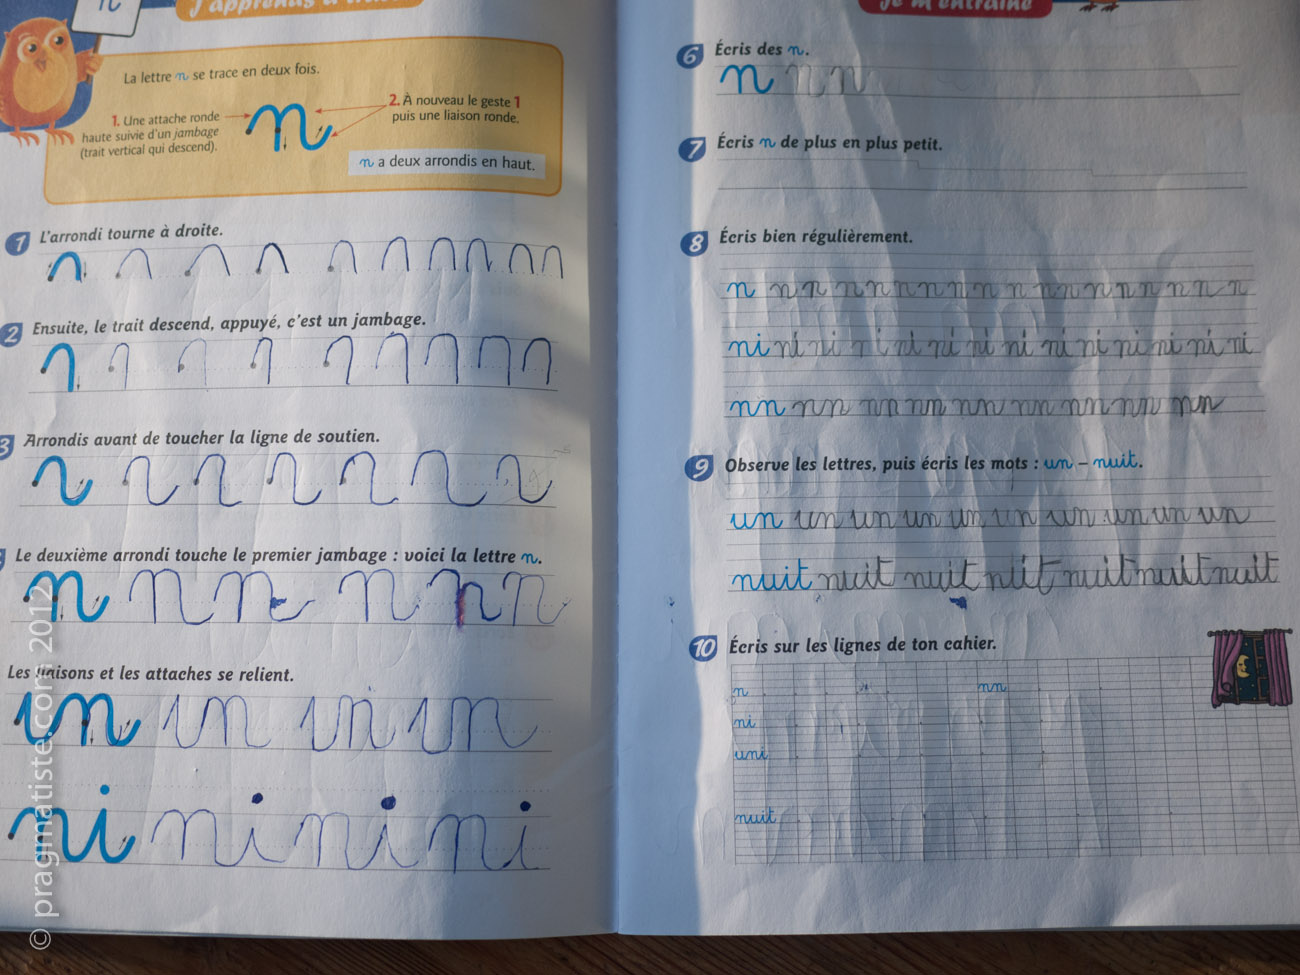 n
J'apprends à
La lettre n se trace en deux fois.
1. Une attache ronde
haute suivie d'un jambage
(trait vertical qui descend).
n
2. À nouveau le geste 1
puis une liaison ronde.
n a deux arrondis en haut.
1 L'arrondi tourne à droite.
2 Ensuite, le trait descend, appuyé, c'est un jambage.
3 Arrondis avant de toucher la ligne de soutien.
Le deuxième arrondi touche le premier jambage : voici la lettre n.
n n n n n n
Les liaisons et les attaches se relient.
un un un un
ni ni ni ni
Je m'entraîne
6 Écris des n.
n n n
7 Écris n de plus en plus petit.
8 Écris bien régulièrement.
n n n n n n n n n n n n n n n n n n
ni ni ni ni ni ni ni ni ni ni ni ni ni ni
nn nn nn nn nn nn nn nn nn
9 Observe les lettres, puis écris les mots : un – nuit.
un un un un un un un un un un
nuit nuit nuit nuit nuit nuit nuit
10 Écris sur les lignes de ton cahier.
n nn
ni
uni
nuit
© pragmatiste.com 2012